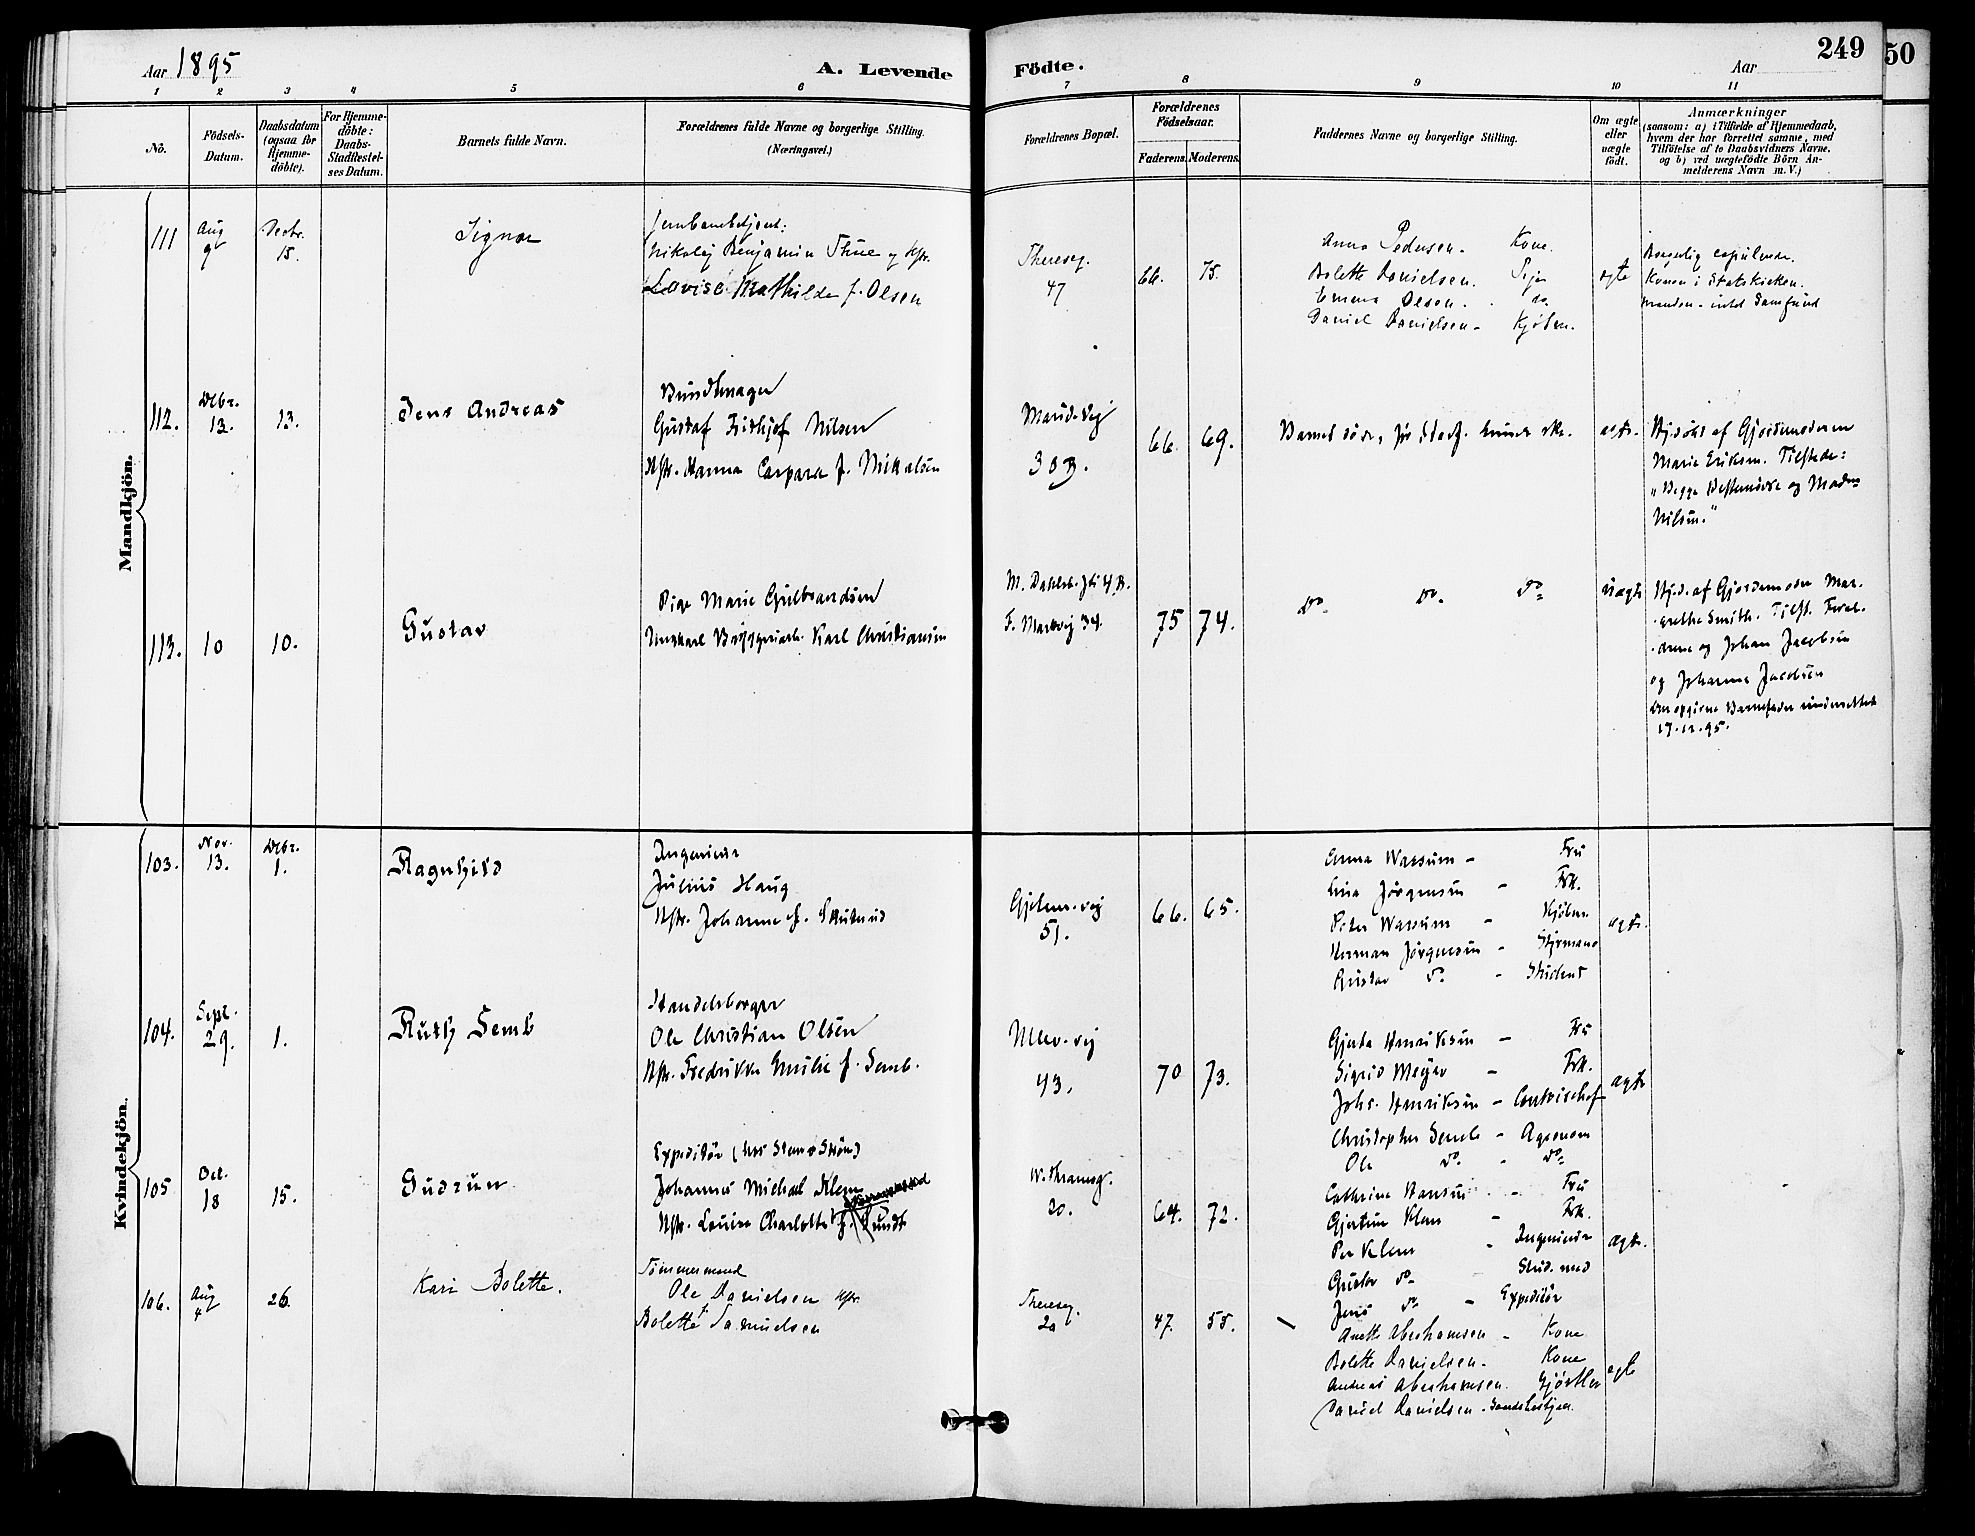 Aar 1895
A. Levende
Födte.
Aar
249
50
1 2 3 4 5 6 7 8 9 10 11
No.
Födsels-
Datum.
Daabsdatum
(ogsaa for
Hjemme-
döbte).
For Hjemme-
döbte:
Daabs-
Stadfæstel-
ses Datum.
Barnets fulde Navn.
Forældrenes fulde Navne og borgerlige Stilling.
(Næringsvei.)
Forældrenes Bopæl.
Forældrenes
Födselsaar.
Faderens. Moderens.
Faddernes Navne og borgerlige Stilling.
Om ægte
eller
uægte
födt.
Anmærkninger
(saasom: a) i Tilfælde af Hjemmedaab,
hvem der har forrettet samme, med
Tilföielse af to Daabsvidners Navne,
og b) ved uægtefödte Börn An-
melderens Navn m. V.)
Mandkjön.
111
Aug
9
Decbr.
15.
Signor
Jernbanebetjent:
Nikolaj Benjamin Thue og Hst.
Lovise Mathilde f. Olsen
Thereseg.
47
66. 75.
Anna Pedersen - Kone.
Bolette Danielsen. Pige
Emma Olsen. - do.
Daniel Danielsen - Kjøbm.
ægte
Borgerlig copulerede.
Konen i Statskirken.
Manden - intet Samfund
112.
Decbr.
13.
13.
Jens Andreas
Bundtmager
Gustaf Fridhjof Nilsen
Hst. Hanna Caspara f. Mikalsen
Maridalsvej
30 B.
66. 69.
ægte.
Hj.døbt af Gjordemoderen
Marie Eriksen. Tilstede:
"Begge Bestemødre og Madam
Nilsen."
113.
10
10.
Gustav
Pige Marie Gulbrandsen
Ungkarl Bryggeriarb. Karl Christiansen
F. Markvej 34.
75 74.
do. do. do.
uægte
Hj.d. af Gjordemoder Mar-
grethe Smith. Tilst. Foræl-
drene og Johan Jacobsen
og Johanna Jacobsen
Den opgivne Barnefader underrettet
17.12.95.
Kvindekjön.
103.
Nov.
13.
Decbr.
1.
Ragnhild
Ingeniør
Julius Haug
Hst. Johanne f. Skuterud
51.
66. 65.
Anna Wassum - Fru
Lina Jörgensen - Frk.
Peter Wassum - Kjøbm.
Herman Jörgensen - Styrmand
Gustav do. - Student
ægte.
104.
Sept.
29.
1.
Ruth Semb
Handelsborger
Ole Christian Olsen
Hst. Fredrikke Emilie f. Semb.
43.
70 73.
Gjerda Henriksen - Fru
Sigrid Meyer - Frk.
Johs. Henriksen -
Christopher Semb - Agronom
Ole do. - do.
ægte
105
Oct.
18
15.
Gudrun
Johannes Michael Klem
Hst. Louise Charlotte f. Lundt
W. Thranesg.
20.
64. 72.
Cathrine Hansen - Fru
Gjertine Klem - Frk.
Per Klem - Ingeniør
Gustav do - Stud. med
Jens do - Expeditør
ægte.
106.
Aug
4
26.
Kari Bolette.
Tømmermand
Ole Danielsen Hst.
Bolette f. Samuelsen
Thereseg.
2a
47. 55.
Anette Abrahamsen - Kone
Bolette Danielsen. Kone
Andreas Abrahamsen. Gjørtler
Daniel Danielsen -
ægte